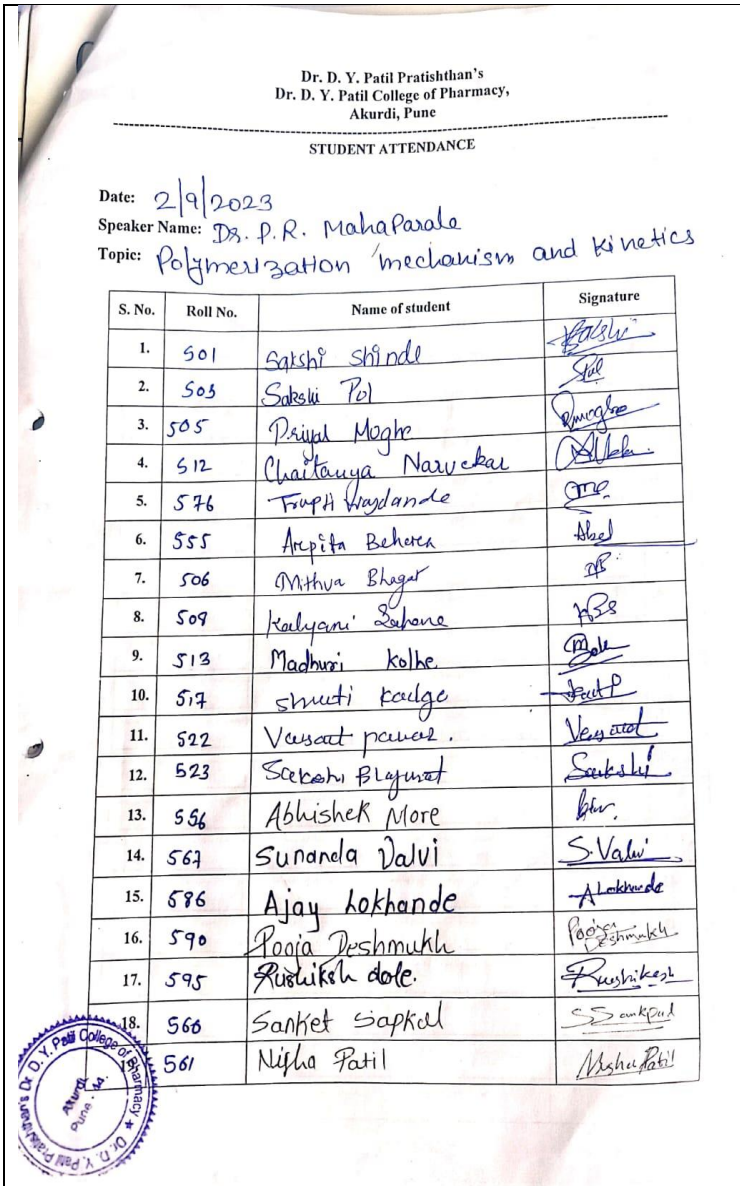 Dr. D. Y. Patil Pratishthan's
Dr. D. Y. Patil College of Pharmacy,
Akurdi, Pune
STUDENT ATTENDANCE
Date: 2/9/2023
Speaker Name: Dr. P.R. Mahaparale
Topic: Polymerization mechanism and kinetics
S. No. Roll No. Name of student Signature
1. 501 Sakshi Shinde
2. 503 Sakshi Pol
3. 505 Priyal Moghe
4. 512 Chaitanya Narvekar
5. 576 Trupti
6. 555 Arpita Behera
7. 506 Mithva Bhagat
8. 509 Kalyani
9. 513 Madhuri Kolhe
10. 517 kadge
11. 522
12. 523
13. 556 Abhishek More
14. 567 Sunanda Valvi S. Valvi
15. 586 Ajay Lokhande ALokhande
16. 590 Pooja Deshmukh Pooja Deshmukh
17. 595 Rushiksh dole. Rushikesh
18. 560 Sanket Sapkal
561 Nisha Patil Nisha Patil
Dr. D. Y. Patil Pratishthan's Dr. D. Y. Patil College of Pharmacy
Akurdi
Pune - 44.